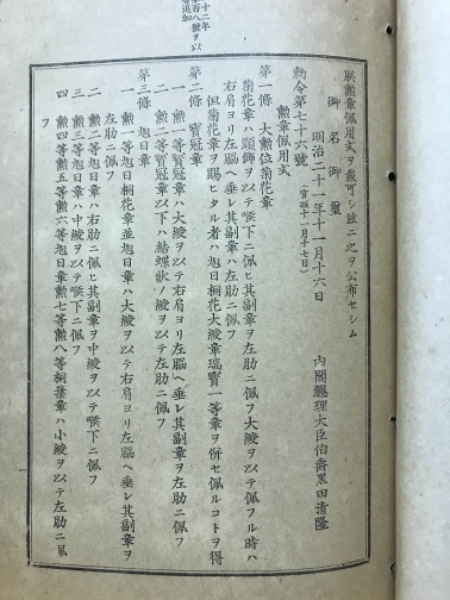 十二年
百八號ヲ以
追加
朕勲章佩用式ヲ裁可シ玆ニ之ヲ公布セシム
御名御璽
明治二十一年十一月十六日
內閣總理大臣伯爵黑田淸隆
勅令第七十六號(官報十一月十七日)
勲章佩用式
第一條 大勲位菊花章
菊花章ハ頸飾ヲ以テ喉下ニ佩ヒ其副章ヲ左肋ニ佩フ大綬ヲ以テ佩フル時ハ
右肩ヨリ左脇ヘ垂レ其副章ハ左肋ニ佩フ
但菊花章ヲ賜ヒタル者ハ旭日桐花大綬章瑞寶一等章ヲ併セ佩ルコトヲ得
第二條 寶冠章
一 勲一等寶冠章ハ大綬ヲ以テ右肩ヨリ左脇ヘ垂レ其副章ヲ左肋ニ佩フ
二 勲二等寶冠章以下ハ結蝶狀ノ綬ヲ以テ左肋ニ佩フ
第三條 旭日章
一 勲一等旭日桐花章並旭日章ハ大綬ヲ以テ右肩ヨリ左脇ヘ垂レ其副章ヲ
左肋ニ佩フ
二 勲二等旭日章ハ右肋ニ佩ヒ其副章ヲ中綬ヲ以テ喉下ニ佩フ
三 勲三等旭日章ハ中綬ヲ以テ喉下ニ佩フ
四 勲四等勲五等勲六等旭日章勲七等勲八等桐葉章ハ小綬ヲ以テ左肋ニ佩
フ